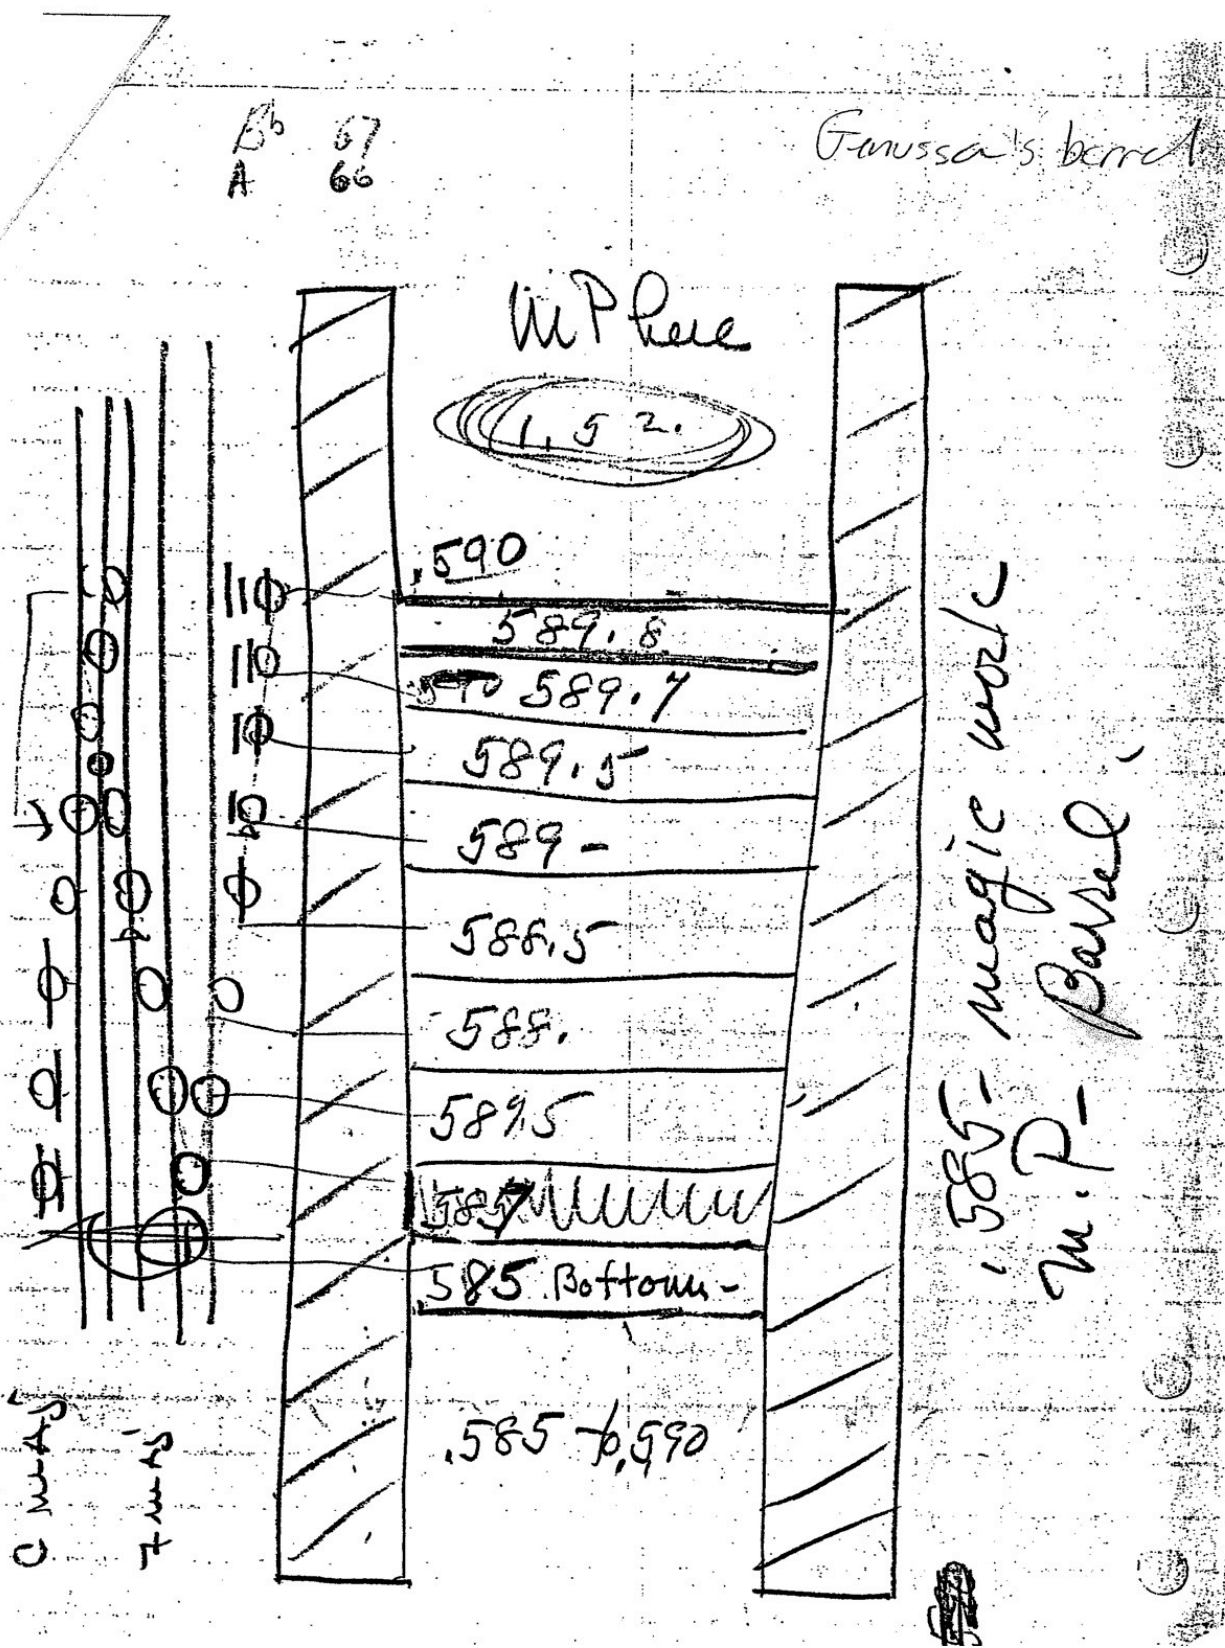 Bb 67
A 66
Genussa's barrel
M P here
1.52.
.590
589.8
589.7
589.5
589 -
588.5
588.
587.5
587
.585 Bottom -
.585 to .590
.585 - magic work
M.P - Barrel
C maj
F maj